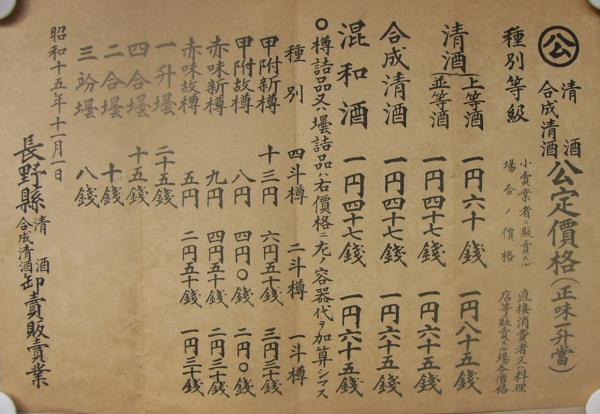 公 清酒 合成清酒 公定價格(正味一升當)
種別等級 小賣業者ニ販賣スル場合ノ價格 直接消費者又ハ料理店等販賣スル場合價格
清酒 上等酒 一円六十銭 一円八十五銭
並等酒 一円四十七銭 一円六十五銭
合成清酒 一円四十七銭 一円六十五銭
混和酒 一円四十七銭 一円六十五銭
○樽詰品又ハ壜詰品ハ右價格ニ左ノ容器代ヲ加算シマス
種別 四斗樽 二斗樽 一斗樽
甲附新樽 十三円 六円五十銭 三円三十銭
甲附故樽 八円 四円〇銭 二円〇銭
赤味新樽 九円 四円五十銭 二円三十銭
赤味故樽 五円 二円五十銭 一円三十銭
一升壜 二十五銭
四合壜 十五銭
二合壜 十銭
三竕壜 八銭
昭和十五年十一月一日
長野縣 清酒 合成清酒 卸賣販賣業